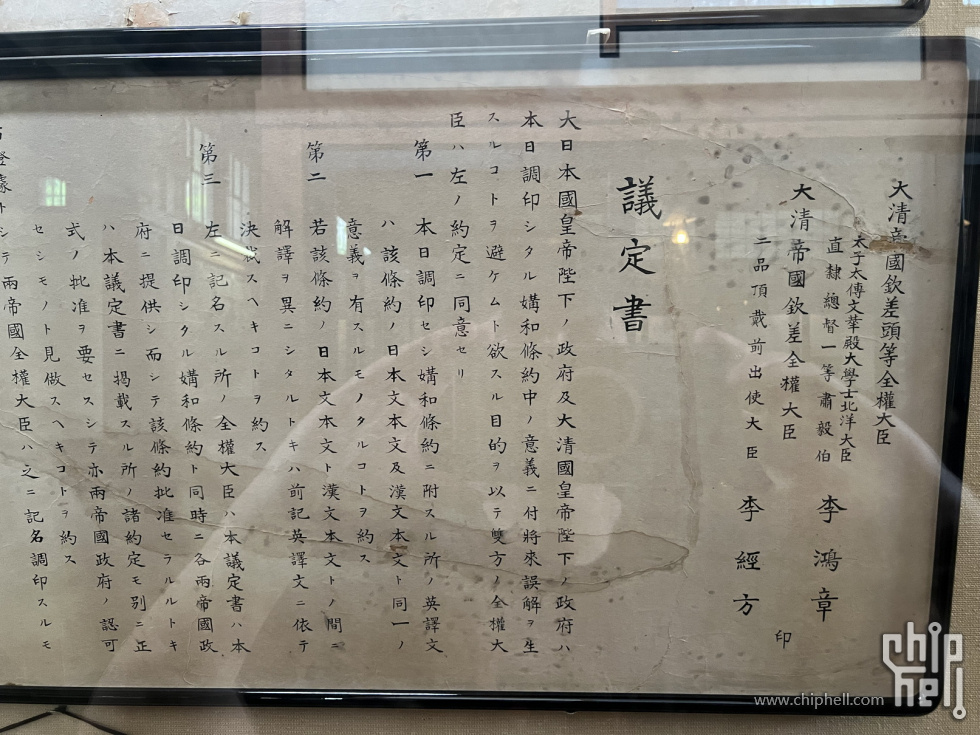 大清帝國欽差頭等全權大臣
太子太傅文華殿大學士北洋大臣
直隷總督一等肅毅伯 李鴻章
大清帝國欽差全權大臣
二品頂戴前出使大臣 李經方 印
議定書
大日本國皇帝陛下ノ政府及大清國皇帝陛下ノ政府ハ
本日調印シタル媾和條約中ノ意義ニ付將來誤解ヲ生
スルコトヲ避ケムト欲スル目的ヲ以テ雙方ノ全權大
臣ハ左ノ約定ニ同意セリ
第一 本日調印セシ媾和條約ニ附スル所ノ英譯文
ハ該條約ノ日本文本文及漢文本文ト同一ノ
意義ヲ有スルモノタルコトヲ約ス
第二 若該條約ノ日本文本文ト漢文本文トノ間ニ
解譯ヲ異ニシタルトキハ前記英譯文ニ依テ
決裁スヘキコトヲ約ス
第三 左ニ記名スル所ノ全權大臣ハ本議定書ハ本
日調印シタル媾和條約ト同時ニ各兩帝國政
府ニ提供シ而シテ該條約批准セラルルトキ
ハ本議定書ニ揭載スル所ノ諸約定モ別ニ正
式ノ批准ヲ要セスシテ亦兩帝國政府ノ認可
セシモノト見做スヘキコトヲ約ス
證據トシテ兩帝國全權大臣ハ之ニ記名調印スルモ
www.chiphell.com
chip hell